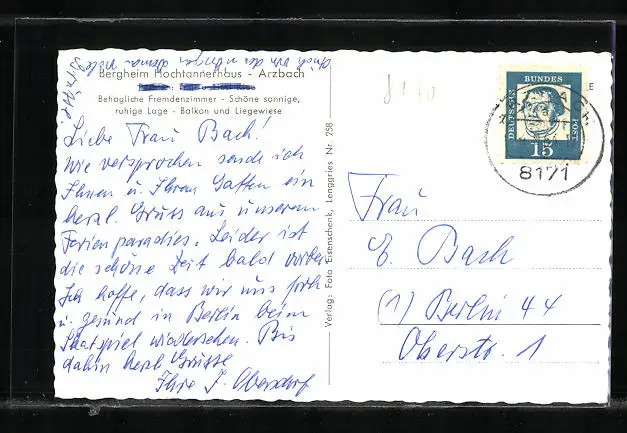 Bergheim Hochtannerhaus - Arzbach
Behagliche Fremdenzimmer - Schöne sonnige,
ruhige Lage - Balkon und Liegewiese
Liebe Frau Bach!
Wie versprochen sende ich
Ihnen u. Ihrem Gatten ein
herzl. Gruss aus unserem
Ferienparadies. Leider ist
die schöne Zeit bald vorbei
Ich hoffe, dass wir uns froh
u. gesund in Berlin beim
Skatspiel wiedersehen. Bis
dahin herzl. Grüsse
Ihre J. Obersdorf
auch von der übrigen
Grüsse.
Verlag: Foto Eisenschenk, Lenggries Nr. 258
8171
DEUTSCHE BUNDESPOST
15
8171
Frau
E. Bach
(1) Berlin 44
Oberstr. 1